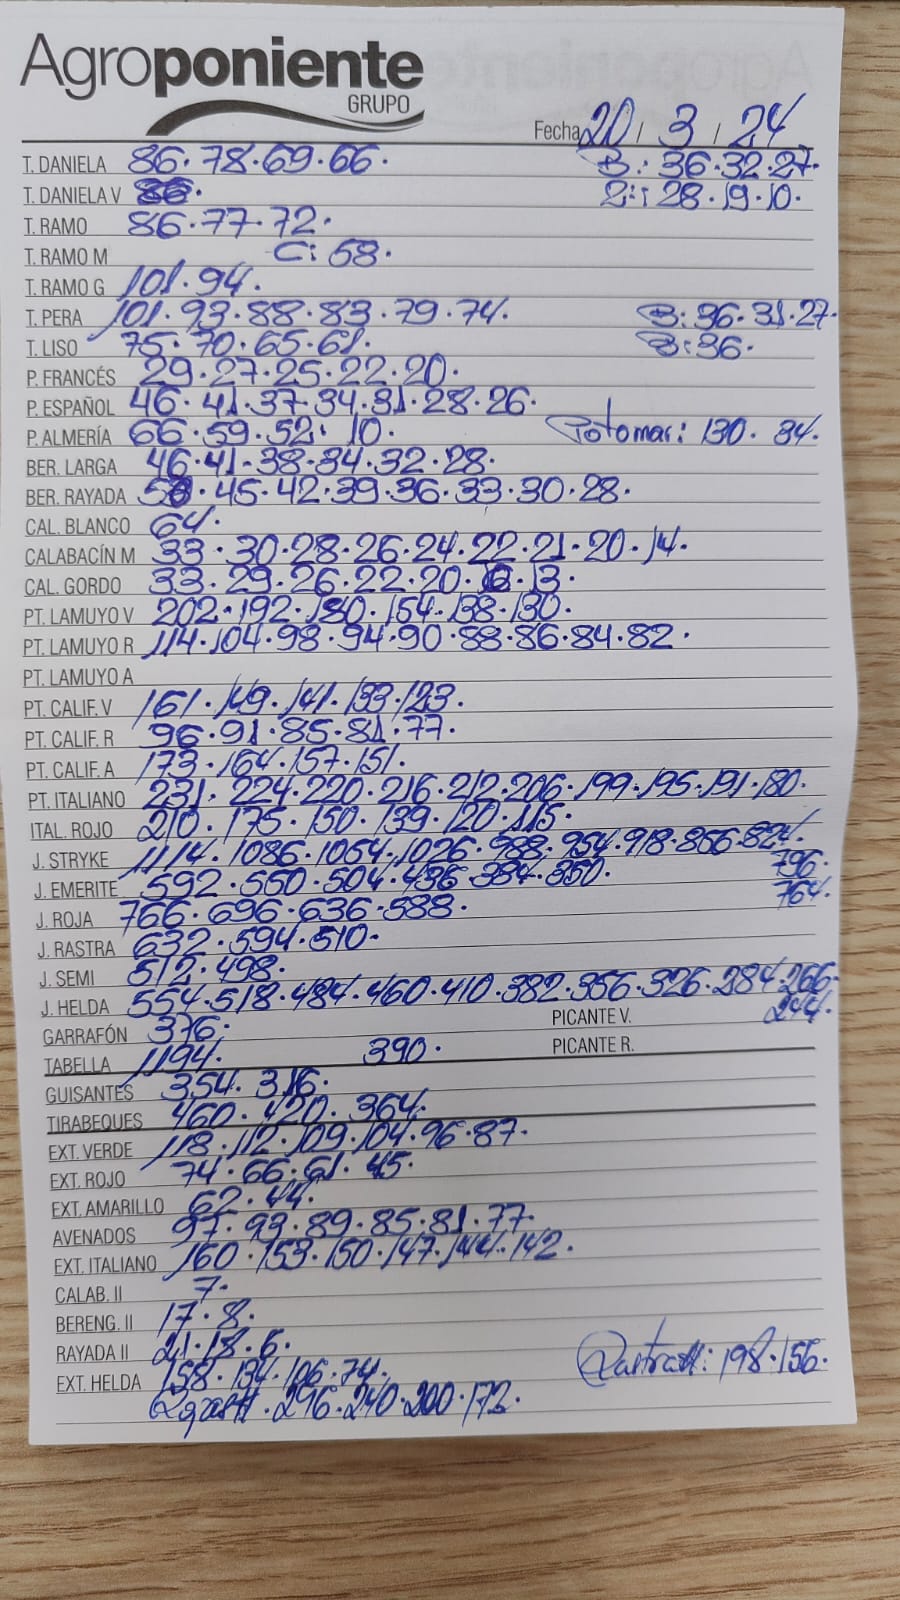 Agroponiente
GRUPO
Fecha 20 / 3 / 24
T. DANIELA 86.78.69.66. B: 36.32.27.
T. DANIELA V 86. 2ª: 28.19.10.
T. RAMO 86.77.72.
T. RAMO M C: 58.
T. RAMO G 101.94.
T. PERA 101.93.88.83.79.74. B: 36.31.27.
T. LISO 75.70.65.61. B: 36.
P. FRANCÉS 29.27.25.22.20.
P. ESPAÑOL 46.41.37.34.31.28.26.
P. ALMERÍA 66.59.52. 10. Potomar: 130. 34.
BER. LARGA 46.41.38.34.32.28.
BER. RAYADA 45.42.39.36.33.30.28.
CAL. BLANCO 64.
CALABACÍN M 33.30.28.26.24.22.21.20.14.
CAL. GORDO 33.29.26.22.20.16.13.
PT. LAMUYO V 202.192.180.154.138.130.
PT. LAMUYO R 114.104.98.94.90.88.86.84.82.
PT. LAMUYO A
PT. CALIF. V 161.149.141.133.123.
PT. CALIF. R 96.91.85.81.77.
PT. CALIF. A 173.164.157.151.
PT. ITALIANO 231.224.220.216.212.206.199.195.191.180.
ITAL. ROJO 210.175.150.139.120.115.
J. STRYKE 1114.1086.1054.1026.988.954.918.866.824.
796.
J. EMERITE 592.550.504.436.384.350.
764.
J. ROJA 766.696.636.588.
J. RASTRA 632.594.510.
J. SEMI 512.498.
J. HELDA 554.518.484.460.410.382.356.326.284.266.
244.
GARRAFÓN 376. PICANTE V.
TABELLA 1194. 390. PICANTE R.
GUISANTES 354.316.
TIRABEQUES 460.420.364.
EXT. VERDE 118.112.109.104.96.87.
EXT. ROJO 74.66.61.45.
EXT. AMARILLO 62.44.
AVENADOS 97.93.89.85.81.77.
EXT. ITALIANO 160.153.150.147.144.142.
CALAB. II 7.
BERENG. II 17.8.
RAYADA II 21.18.6.
EXT. HELDA 158.134.106.74. 198.156.
296.240.200.172.